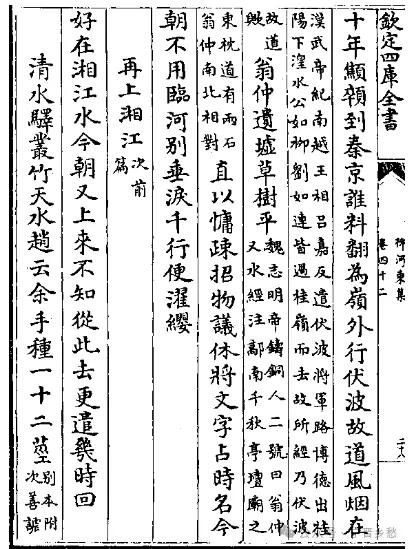 欽定四庫全書
柳河東集
卷四十二
十年顦顇到秦京誰料翻為嶺外行伏波故道風烟在
漢武帝紀南越王相呂嘉反遣伏波將軍路博德出桂
陽下湟水公如柳劉如連皆過桂嶺而去故所經乃伏波
故道歟翁仲遺墟草樹平魏志明帝鑄銅人二號曰翁仲又水經注鄗南千秋亭壇廟之
東枕道有兩石翁仲南北相對直以慵疎招物議休將文字占時名今
朝不用臨河別垂淚千行便濯纓
再上湘江次前篇
好在湘江水今朝又上來不知從此去更遣幾時回
清水驛叢竹天水趙云余手種一十二莖別本附次善謔